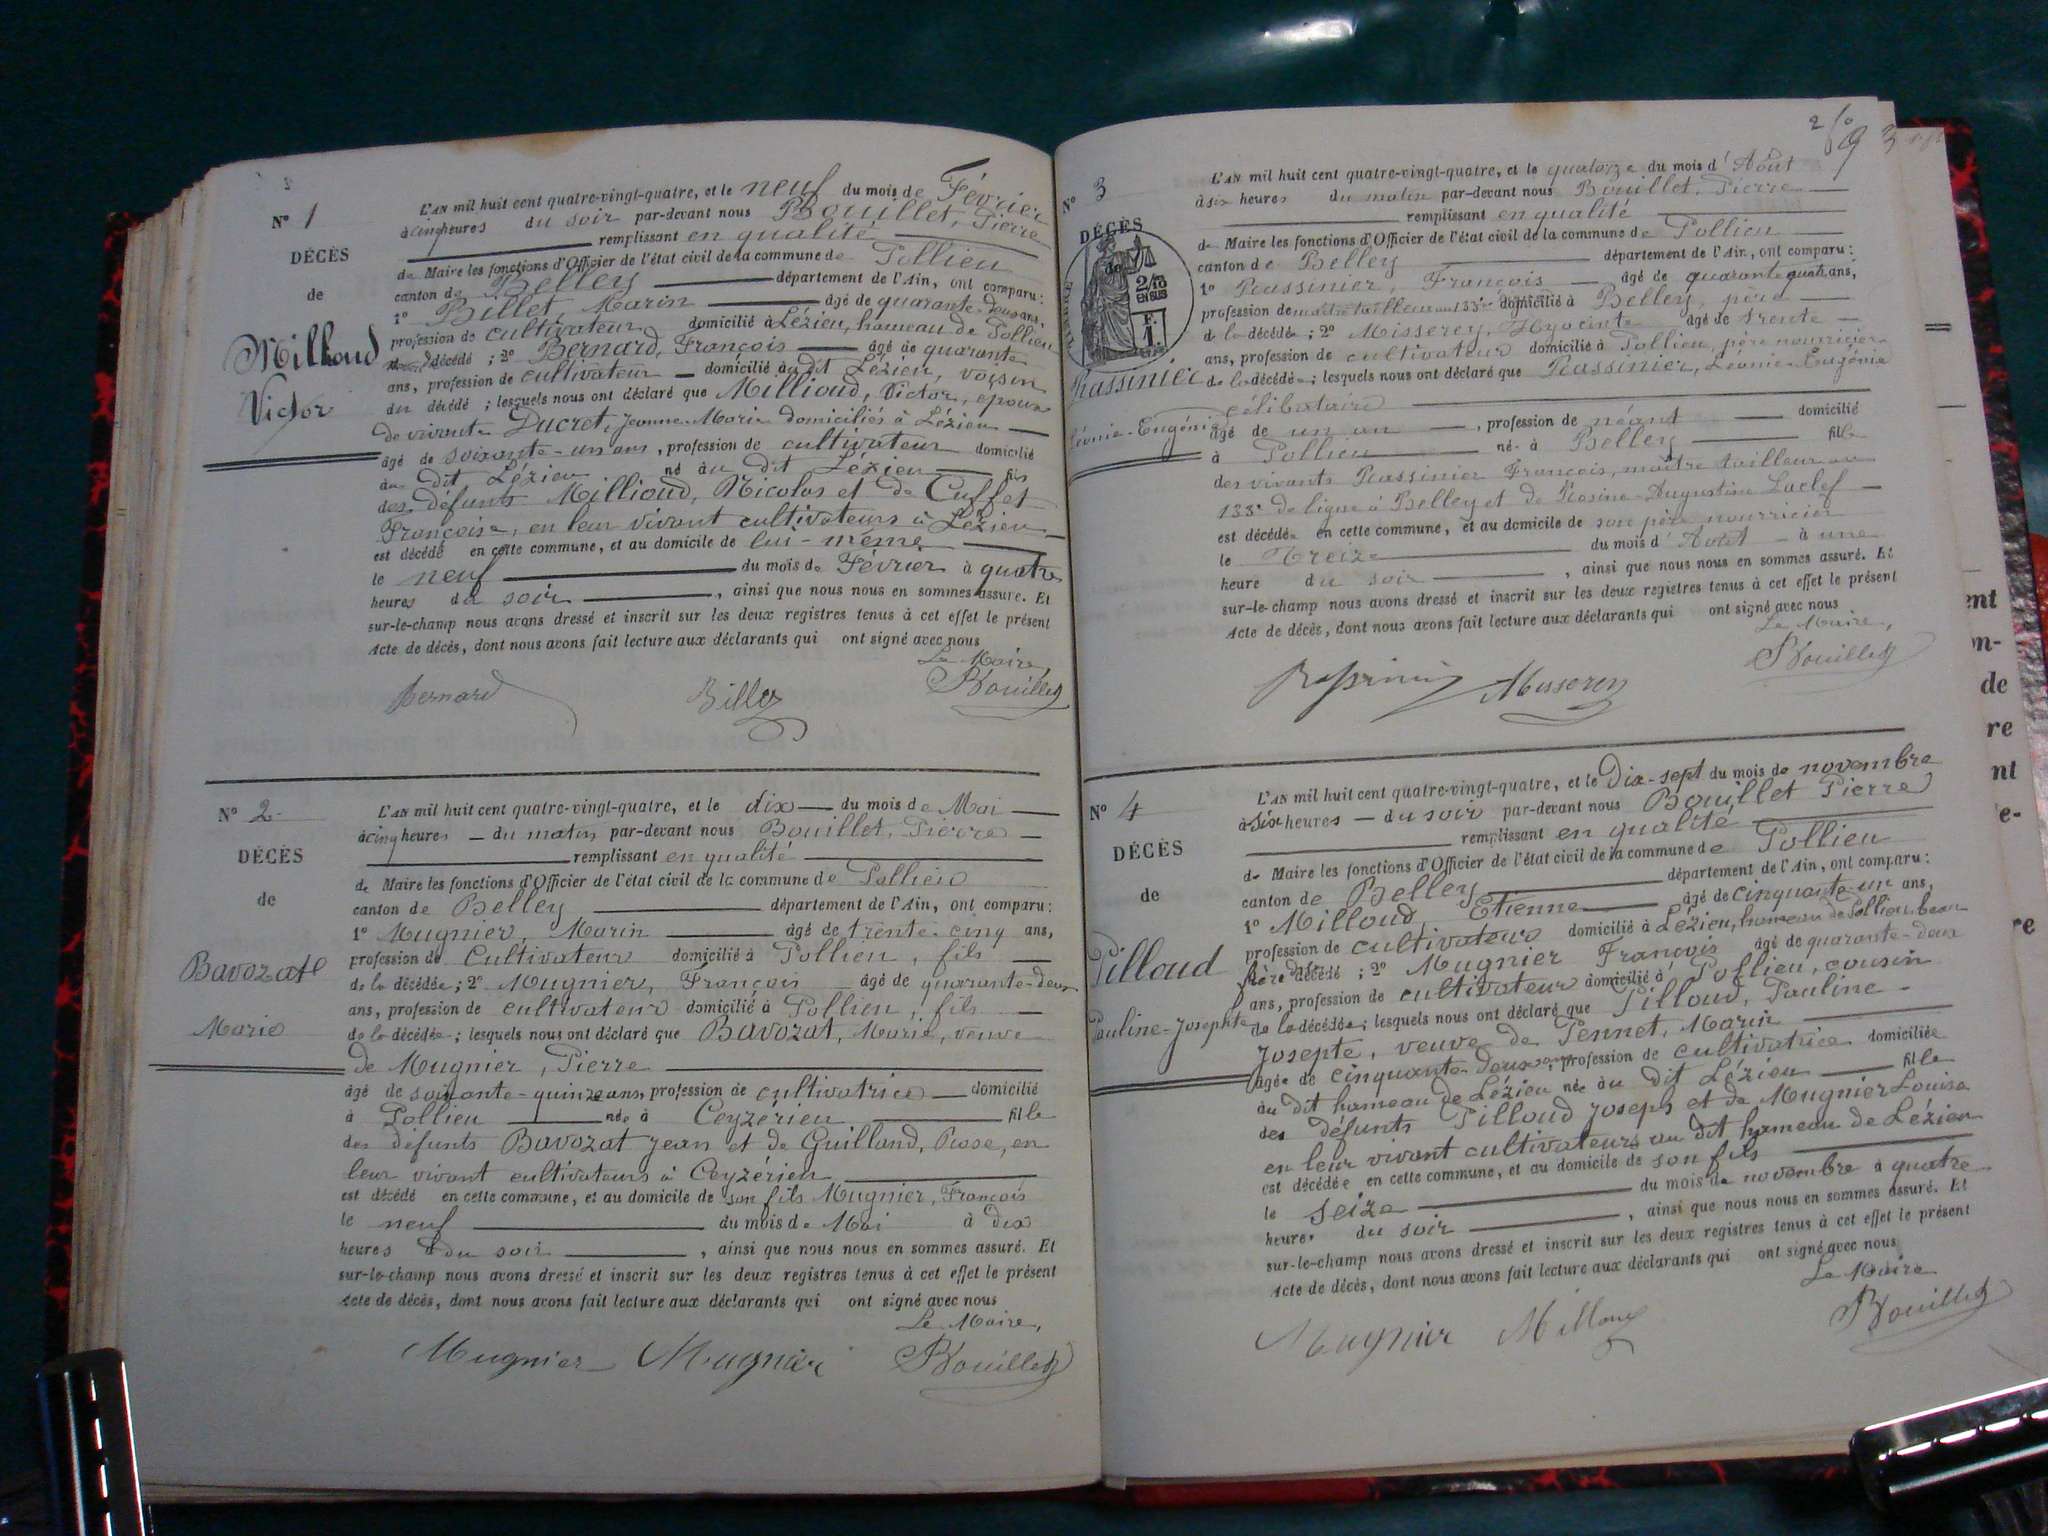 Nº 1
DÉCÈS
de
Millioud
Victor
L'AN mil huit cent quatre-vingt-quatre, et le neuf du mois de Février
à cinq heures du soir par-devant nous Bouillet, Pierre
remplissant en qualité
de Maire les fonctions d'Officier de l'état civil de la commune de Pollieu
canton de Belley département de l'Ain, ont comparu :
1º Billet, Marin âgé de quarante-deux ans,
profession de cultivateur domicilié à Lézieu, hameau de Pollieu
décédé ; 2º Bernard, François âgé de quarante
ans, profession de cultivateur domicilié au dit Lézieu, voisin
du décédé ; lesquels nous ont déclaré que Millioud, Victor, époux
de vivante Ducret, Jeanne-Marie domiciliés à Lézieu
âgé de soixante-un ans, profession de cultivateur domicilié
au dit Lézieu né au dit Lézieu fils
des défunts Millioud, Nicolas et de Cuffet
Françoise, en leur vivant cultivateurs à Lézieu
est décédé en cette commune, et au domicile de lui-même
le neuf du mois de Février à quatre
heures du soir , ainsi que nous nous en sommes assuré. Et
sur-le-champ nous avons dressé et inscrit sur les deux registres tenus à cet effet le présent
Acte de décès, dont nous avons fait lecture aux déclarants qui ont signé avec nous
Le Maire,
Bernard Billet Bouillet
Nº 2
DÉCÈS
de
Bavozat
Marie
L'AN mil huit cent quatre-vingt-quatre, et le dix du mois de Mai
à cinq heures du matin par-devant nous Bouillet, Pierre
remplissant en qualité
de Maire les fonctions d'Officier de l'état civil de la commune de Pollieu
canton de Belley département de l'Ain, ont comparu :
1º Mugnier, Marin âgé de trente-cinq ans,
profession de Cultivateur domicilié à Pollieu, fils
de la décédée ; 2º Mugnier, François âgé de quarante-deux
ans, profession de cultivateur domicilié à Pollieu, fils
de la décédée ; lesquels nous ont déclaré que Bavozat, Marie, veuve
de Mugnier, Pierre
âgé de soixante-quinze ans, profession de cultivatrice domicilié
à Pollieu née à Ceyzérieu fille
des défunts Bavozat Jean et de Guilland, Rose, en
leur vivant cultivateurs à Ceyzérieu
est décédé en cette commune, et au domicile de son fils Mugnier, François
le neuf du mois de Mai à dix
heures du soir , ainsi que nous nous en sommes assuré. Et
sur-le-champ nous avons dressé et inscrit sur les deux registres tenus à cet effet le présent
Acte de décès, dont nous avons fait lecture aux déclarants qui ont signé avec nous
Le Maire,
Mugnier Mugnier Bouillet
Nº 3
DÉCÈS
de
2/10
EN SUS
1 F.
Rassinier
Léonie-Eugénie
L'AN mil huit cent quatre-vingt-quatre, et le quatorze du mois d'Août
à six heures du matin par-devant nous Bouillet, Pierre
remplissant en qualité
de Maire les fonctions d'Officier de l'état civil de la commune de Pollieu
canton de Belley département de l'Ain, ont comparu :
1º Rassinier, François âgé de quarante quatre ans,
profession de maître tailleur au 133e domicilié à Belley, père
de la décédée ; 2º Misserey, Hyacinte âgé de trente
ans, profession de cultivateur domicilié à Pollieu, père nourricier
de la décédée ; lesquels nous ont déclaré que Rassinier, Léonie-Eugénie
célibataire
âgé de un an , profession de néant domicilié
à Pollieu né à Belley fille
des vivants Rassinier François, maître tailleur au
133e de ligne à Belley et de Rosine-Augustine Laclef
est décédée en cette commune, et au domicile de son père nourricier
le Treize du mois d'Août à une
heure du soir , ainsi que nous nous en sommes assuré. Et
sur-le-champ nous avons dressé et inscrit sur les deux registres tenus à cet effet le présent
Acte de décès, dont nous avons fait lecture aux déclarants qui ont signé avec nous
Le Maire,
Rassinier Misserey Bouillet
Nº 4
DÉCÈS
de
Pilloud
Pauline-Josephte
L'AN mil huit cent quatre-vingt-quatre, et le Dix-sept du mois de novembre
à six heures du soir par-devant nous Bouillet Pierre
remplissant en qualité
de Maire les fonctions d'Officier de l'état civil de la commune de Pollieu
canton de Belley département de l'Ain, ont comparu :
1º Milloud, Etienne âgé de cinquante-un ans,
profession de cultivateur domicilié à Lézieu, hameau de Pollieu, beau
frère décédé ; 2º Mugnier François âgé de quarante-deux
ans, profession de cultivateur domicilié à Pollieu, cousin
de la décédée ; lesquels nous ont déclaré que Pilloud, Pauline-
Josepte, veuve de Pennet, Marin
âgée de cinquante deux ans, profession de cultivatrice domiciliée
au dit hameau de Lézieu née au dit Lézieu fille
des défunts Pilloud Joseph et de Mugnier Louise
en leur vivant cultivateurs au dit hameau de Lézieu
est décédée en cette commune, et au domicile de son fils
le seize du mois de novembre à quatre
heures du soir , ainsi que nous nous en sommes assuré. Et
sur-le-champ nous avons dressé et inscrit sur les deux registres tenus à cet effet le présent
Acte de décès, dont nous avons fait lecture aux déclarants qui ont signé avec nous
Le Maire
Mugnier Milloud Bouillet